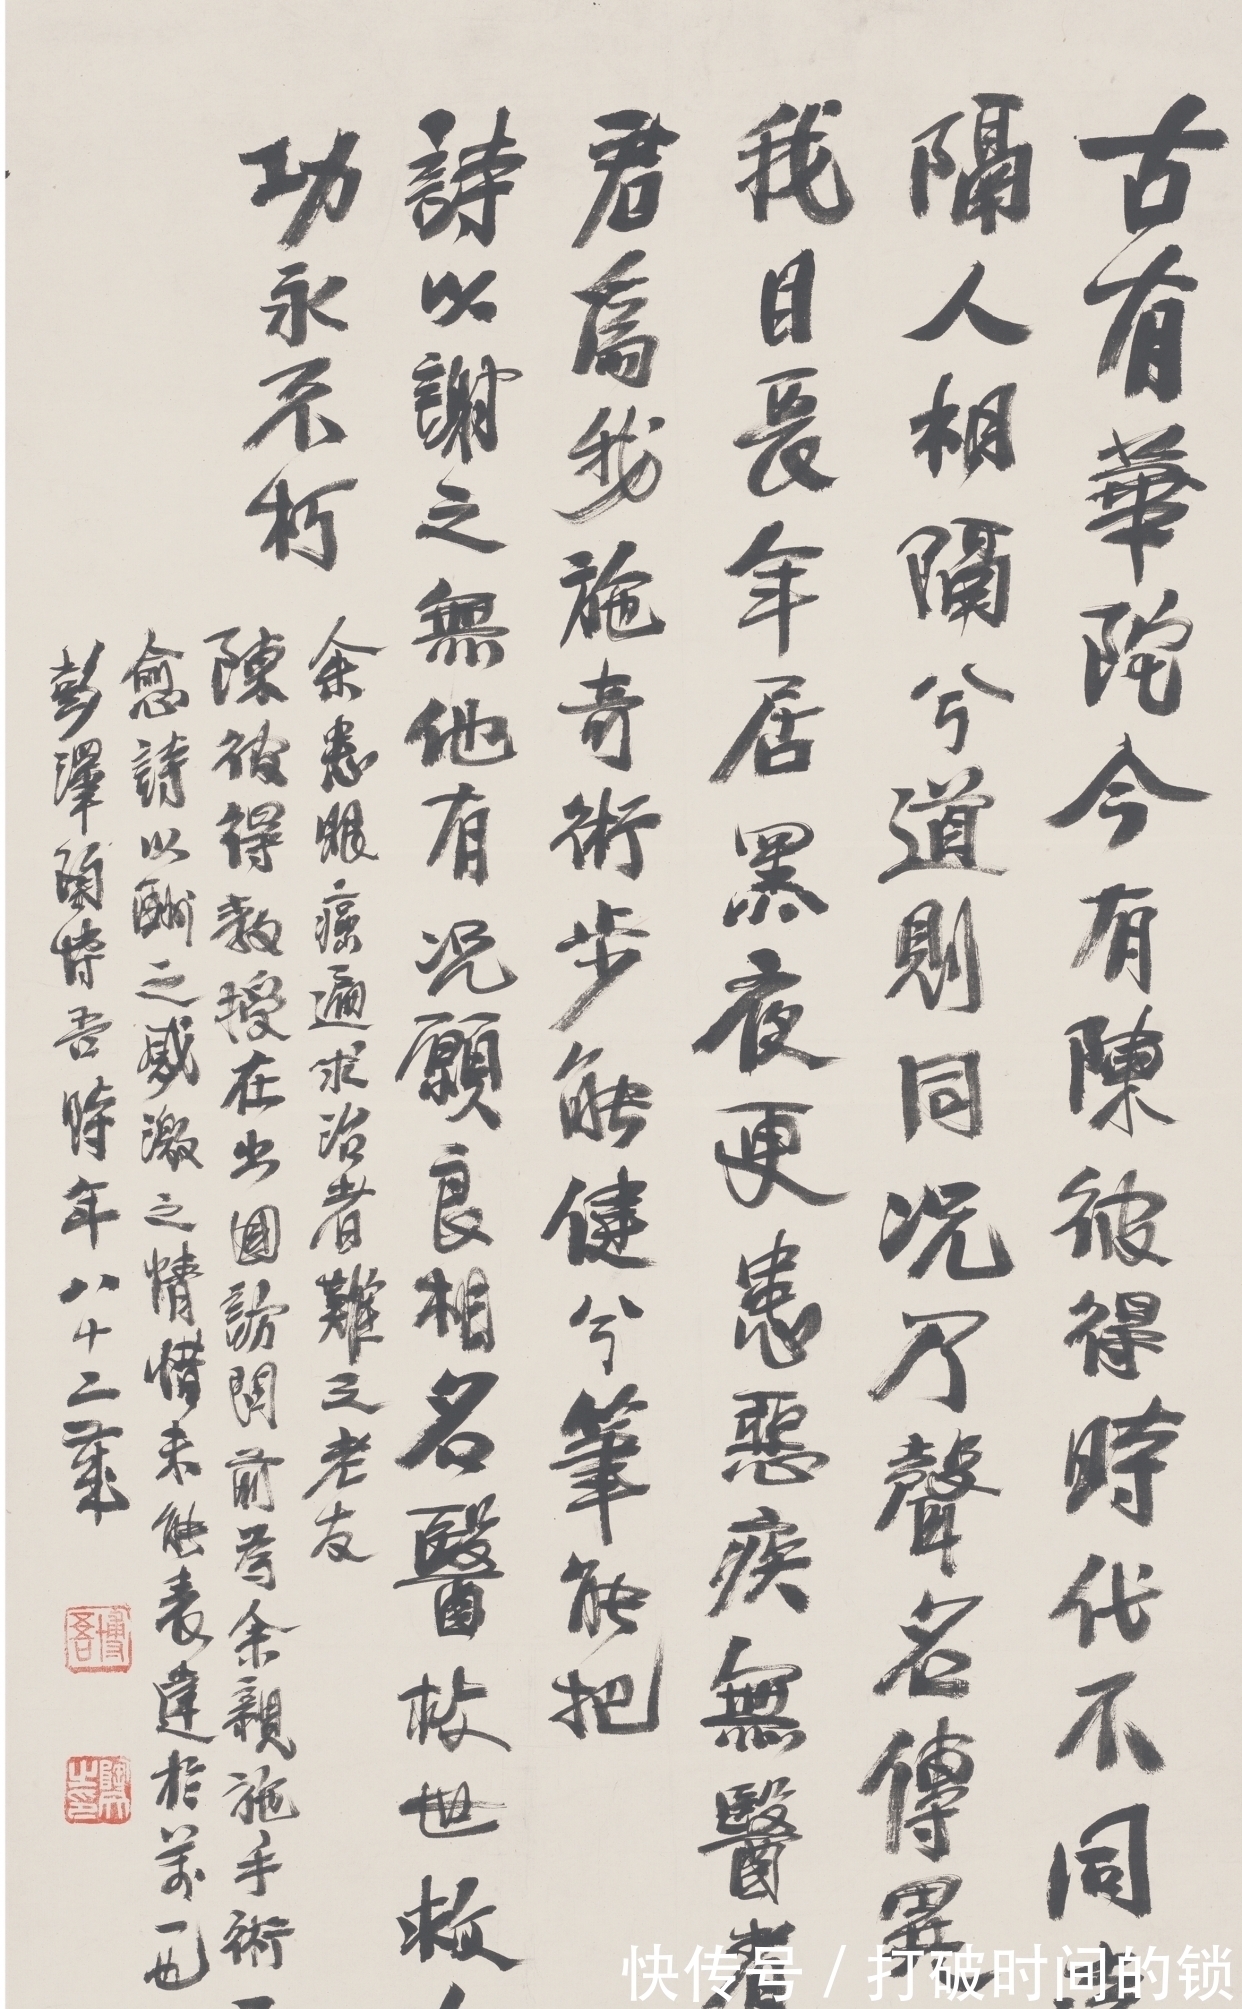 古有華陀今有陳彼得時代不同
隔人相隔兮道則同況乃聲名傳異
我目長年居黑夜更患惡疾無醫者
君為我施奇術步能健兮筆能把
詩以謝之無他有况願良相名醫救世救人
功永不朽
余患眼疾遍求治者難之老友
陳彼得教授在出國訪問前為余親施手術
愈詩以酬之感激之情惜未能表達於萬一也
彭澤陶博吾時年八十二歲
博吾
陶之印
快传号/打破时间的锁